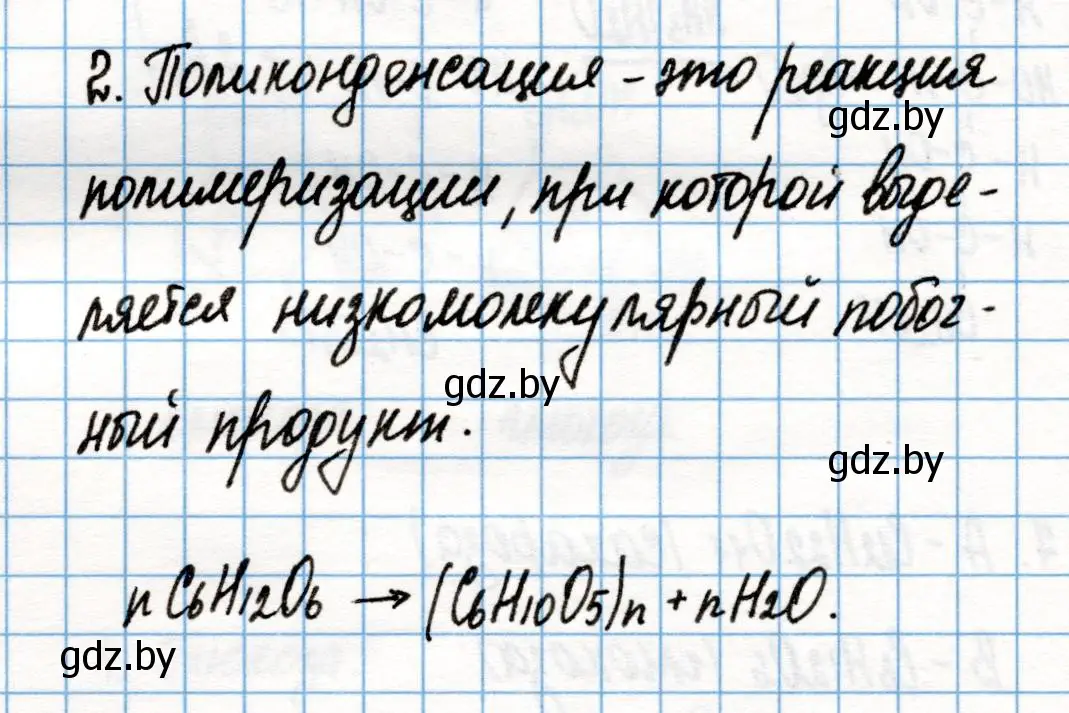 2. Поликонденсация – это реакция
gdz.by
полимеризации, при которой выде-
ляется низкомолекулярный побоч-
gdz.by
ный продукт.
gdz.by
n C6H12O6 → (C6H10O5)n + nH2O.
gdz.by